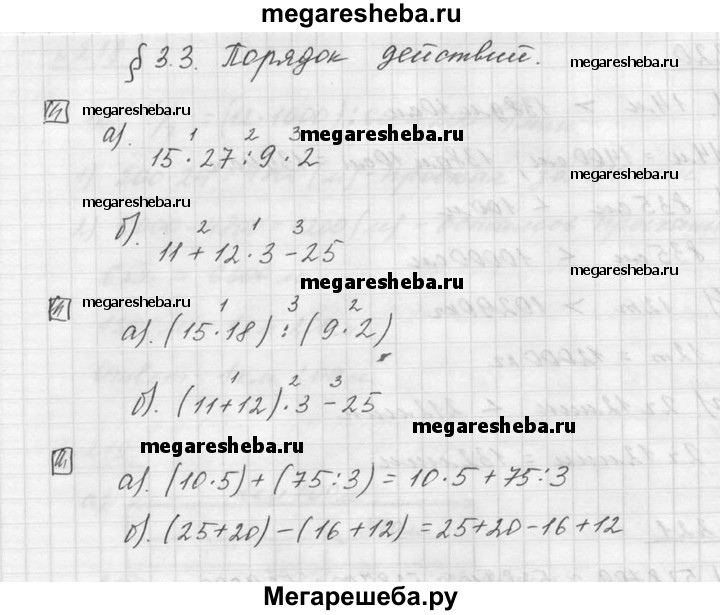 megaresheba.ru
§ 3.3. Порядок действий.
megaresheba.ru
megaresheba.ru
megaresheba.ru
а). 1 2 3
15·27:9·2
megaresheba.ru
б). 2 1 3
11+12·3-25
megaresheba.ru
megaresheba.ru
megaresheba.ru
1 3 2
а). (15·18):(9·2)
1 2 3
б). (11+12)·3-25
megaresheba.ru
megaresheba.ru
а). (10·5)+(75:3)=10·5+75:3
б). (25+20)-(16+12)=25+20-16+12
Мегарешеба.ру